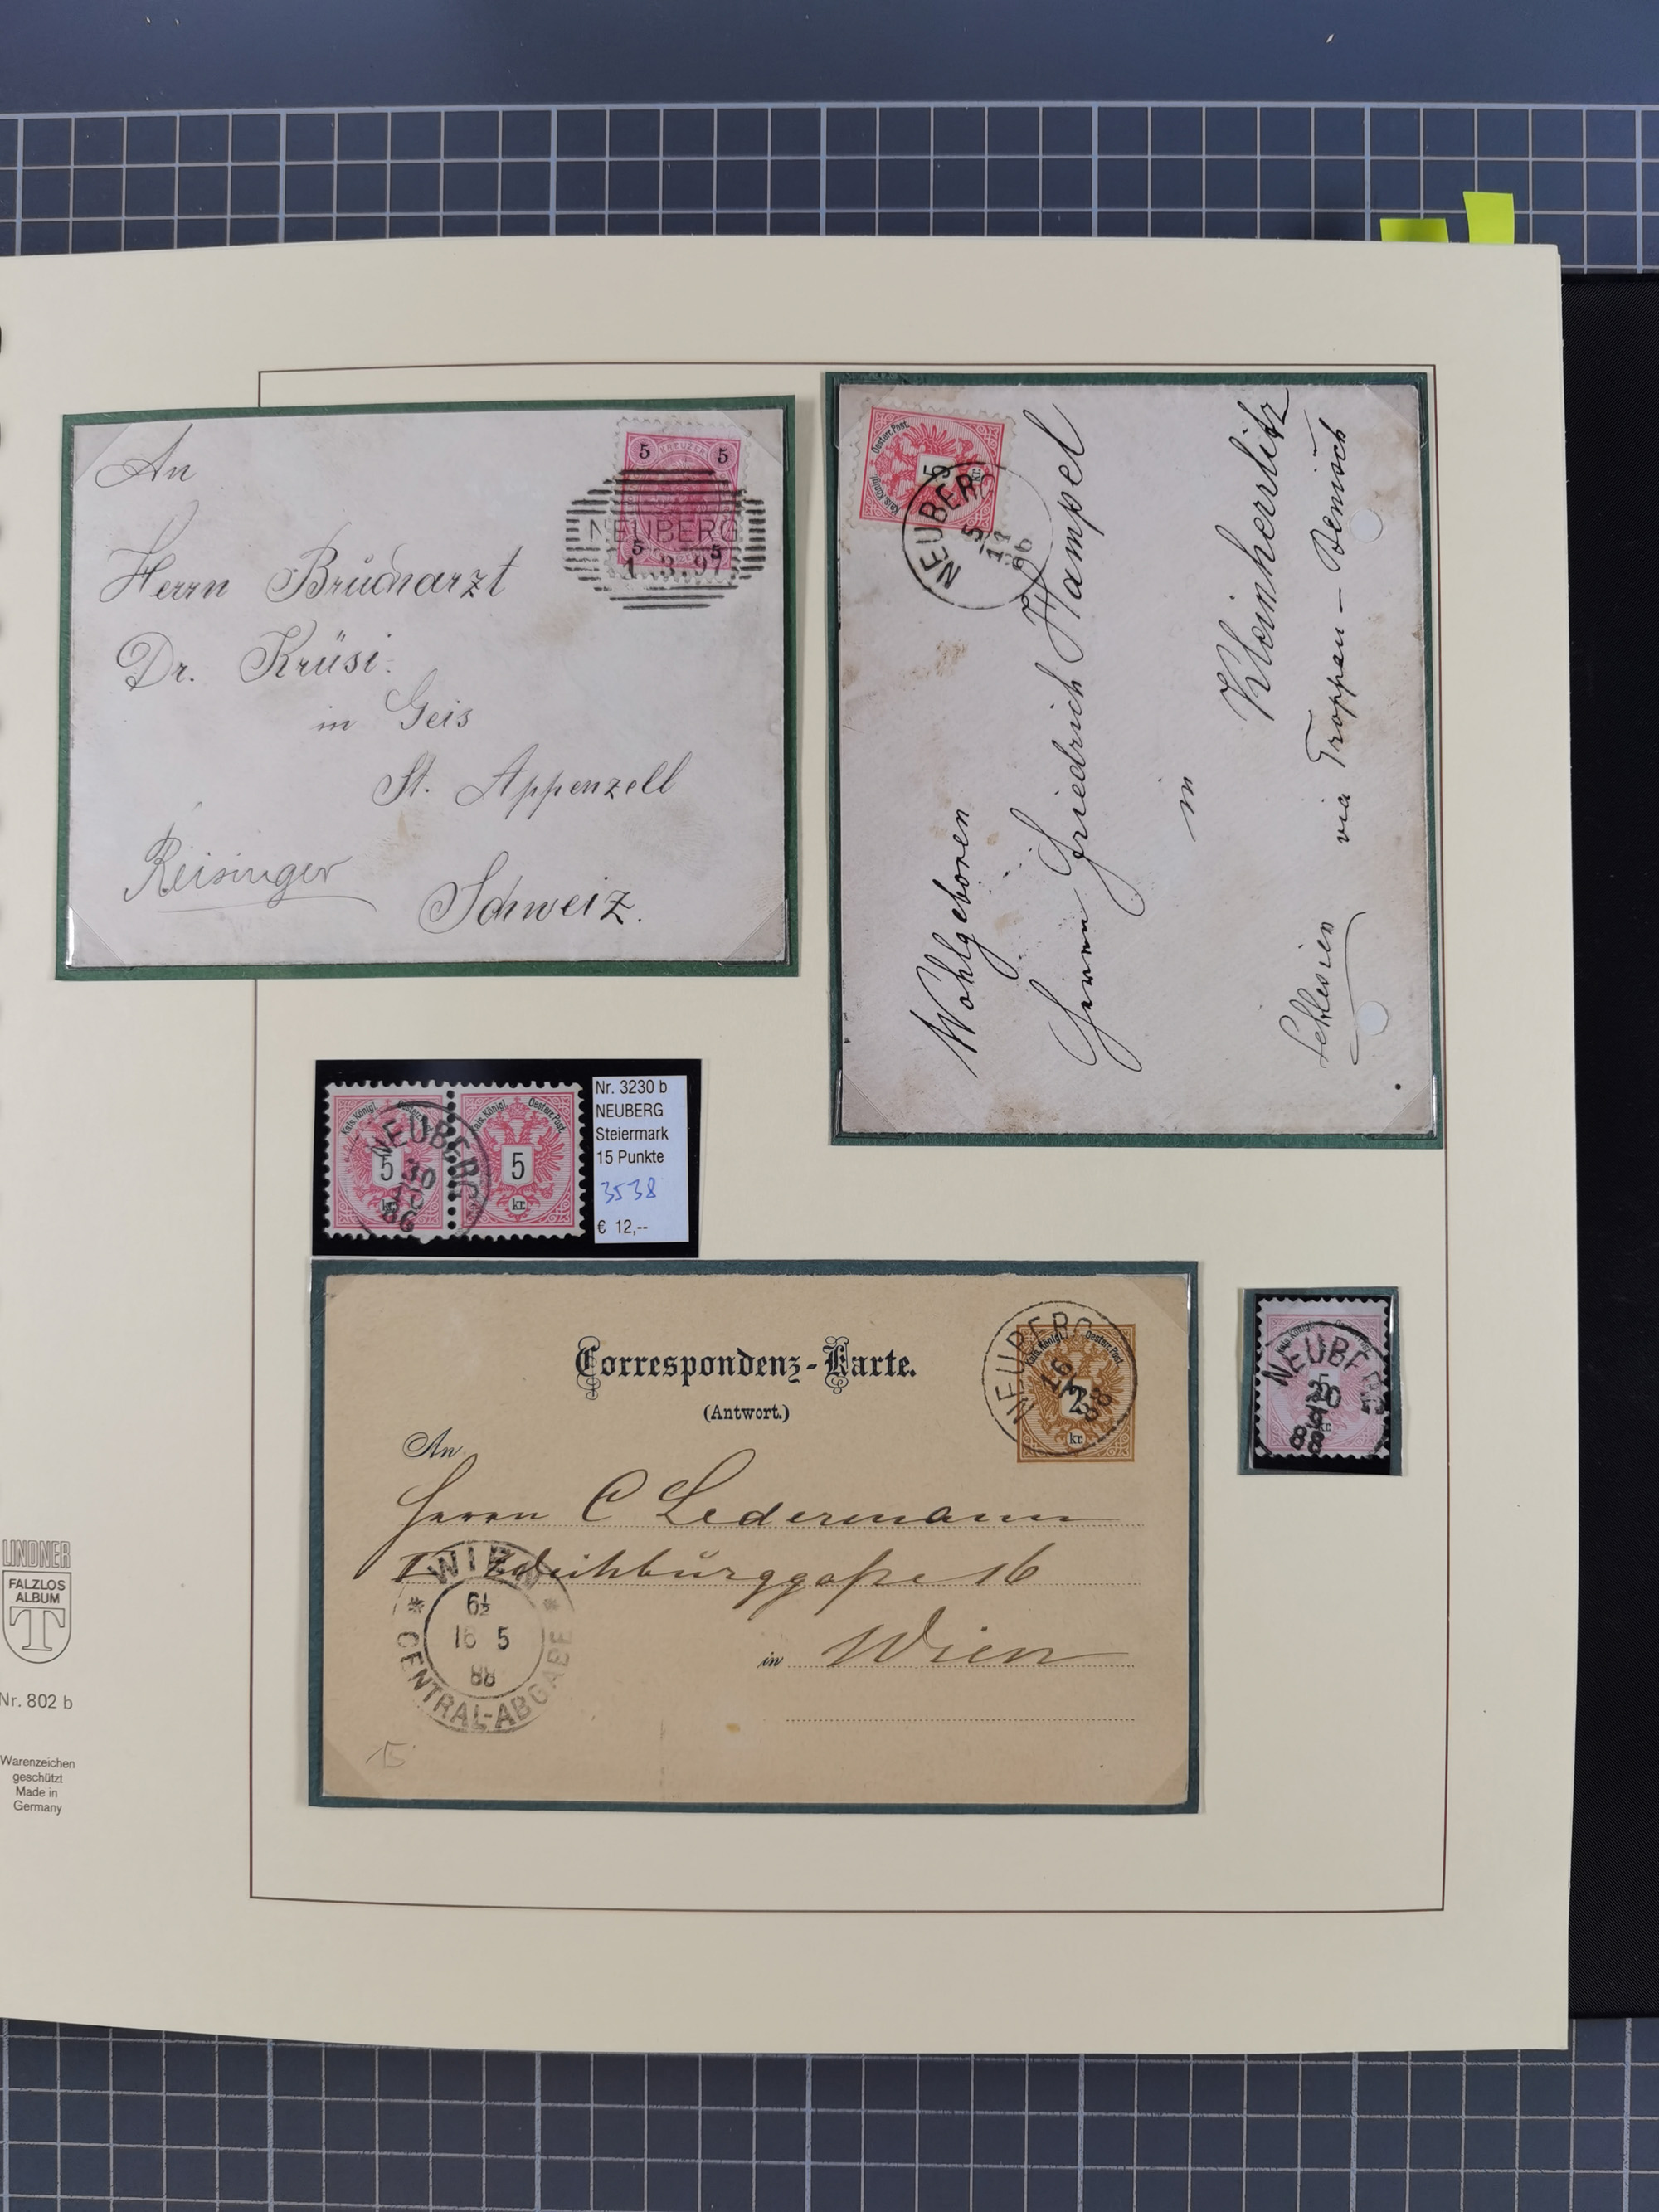 An
Herrn Brückarzt
Dr. Krüsi.
in Geis
St. Appenzell
Reisinger
Schweiz.
5 KREUZER 5
NEUBERG
5 5
1.3.97
Kais. Königl. Oesterr. Post.
5
kr.
NEUBERG
5
11
86
Wohlgeboren
Herrn Friedrich Hampel
in
Kleinherrlitz
via Troppau – Benisch
Schlesien
Kais. Königl. Oesterr. Post.
5
kr.
NEUBERG
30
10
86
Kais. Königl. Oesterr. Post.
5
kr.
Nr. 3230 b
NEUBERG
Steiermark
15 Punkte
3538
€ 12,--
Correspondenz-Karte.
(Antwort.)
Kais. Königl. Oesterr. Post.
2
kr.
NEUBERG
16
88
An
Herrn C Ledermann
I Weihburggasse 16
in Wien
WIEN
6½
16 5
88
CENTRAL-ABGABE
15
NEUBERG
88
LINDNER
FALZLOS
ALBUM
T
Nr. 802 b
Warenzeichen
geschützt
Made in
Germany